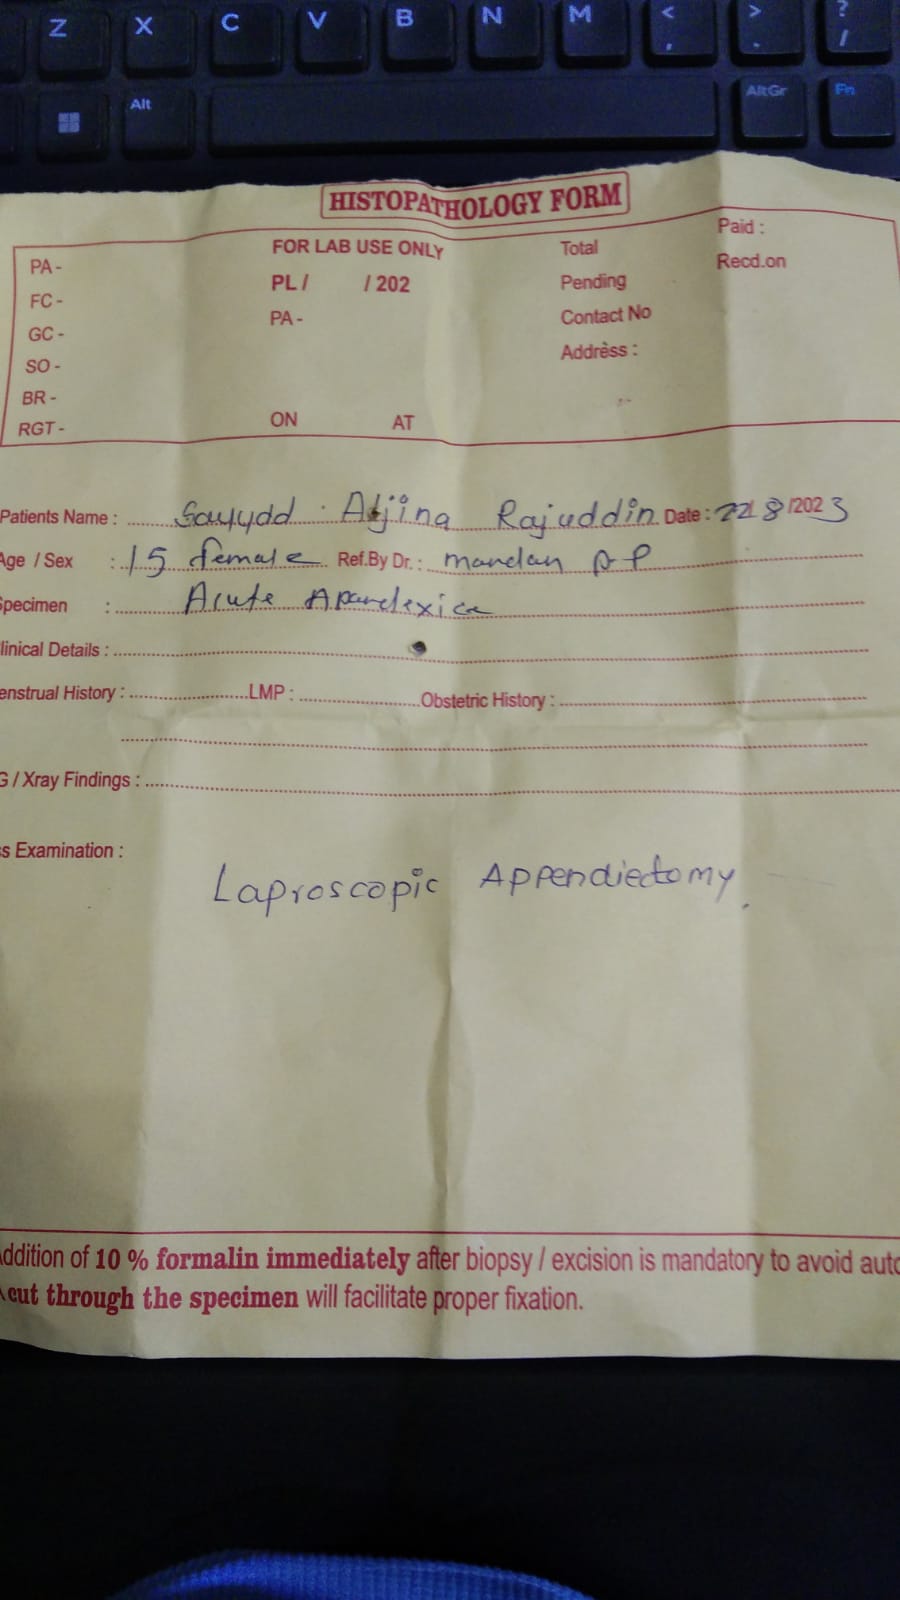 Z X C V B N M < , > . ? /
Alt AltGr Fn
HISTOPATHOLOGY FORM
PA - FOR LAB USE ONLY Total Paid :
FC - PL / / 202 Pending Recd.on
GC - PA - Contact No
SO - Addrèss :
BR -
RGT - ON AT
Patients Name : Sayydd Adjina Rajuddin Date : 22/8/2023
Age / Sex : 15 female Ref.By Dr. : mandan A P
Specimen : Acute
linical Details :
enstrual History : LMP : Obstetric History :
G / Xray Findings :
ss Examination :
Laproscopic Appendiectomy.
Addition of 10 % formalin immediately after biopsy / excision is mandatory to avoid auto
A cut through the specimen will facilitate proper fixation.